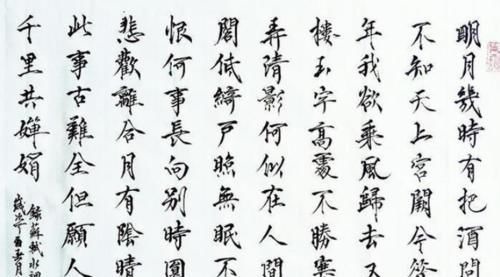 明月幾時有把酒問
不知天上宮闕今
年我欲乘風歸去又
樓玉宇高處不勝寒
弄清影何似在人間
閣低綺戶照無眠不
恨何事長向別時圓
悲歡離合月有陰晴
此事古難全但願人
千里共嬋娟
錄蘇軾水調
歲次丁酉